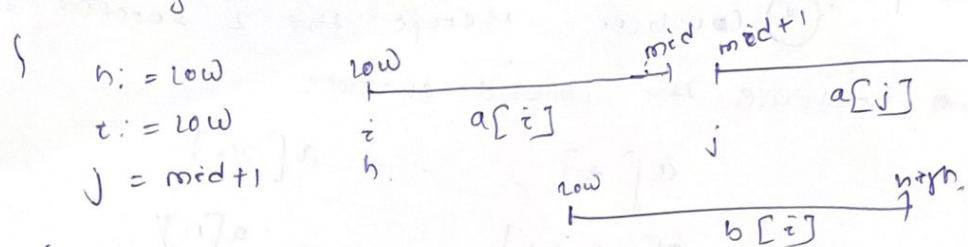 {
h := low
i := low
j = mid+1
low mid mid+1
a[i] a[j]
i j
h
low high
b[i]